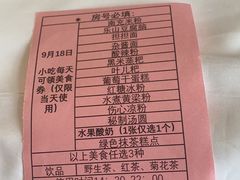 房号必填:
南充米粉
乐山豆腐脑
担担面
杂酱面
酸辣粉
黑米蒸粑
叶儿粑
葡萄干蛋糕
红糖冰粉
水煮黄粱粉
伤心凉粉
秘制汤圆
水果酸奶(1张仅选1个)
绿色抹茶糕点
以上美食任选3种
9月18日
小吃每天
可领美食
券(仅限
当天使
用)
饮品
野生茶、红茶、菊花茶